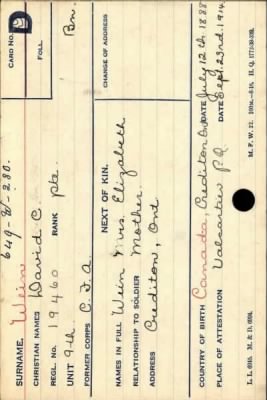 649-W-280.
CARD NO.
D
SURNAME. Wein
FOLL
CHRISTIAN NAMES David C.
REGL. NO. 19460 RANK Pte.
UNIT 9th Bn.
FORMER CORPS C.F.A.
NEXT OF KIN.
CHANGE OF ADDRESS
NAMES IN FULL Wein Mrs. Elizabeth
RELATIONSHIP TO SOLDIER Mother.
ADDRESS Crediton, Ont
COUNTRY OF BIRTH Canada, Crediton Ont DATE July 12th 1888
PLACE OF ATTESTATION Valcartier P.Q. DATE Sept. 23rd. 1914.